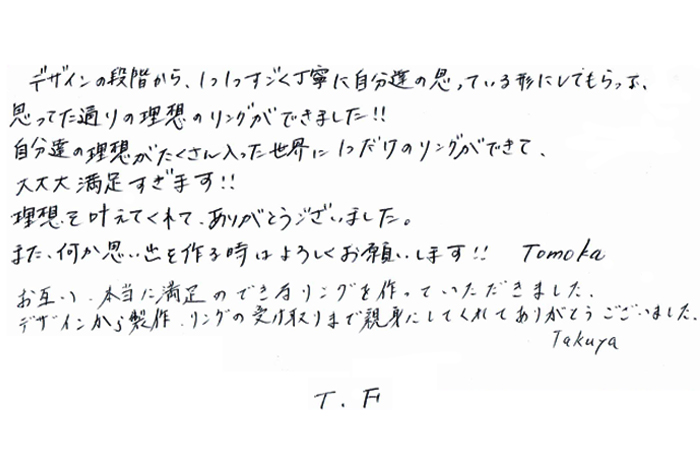 デザインの段階から、1つ1つすごく丁寧に自分達の思っている形にしてもらって、
思ってた通りの理想のリングができました!!
自分達の理想がたくさん入った世界に1つだけのリングができて、
大大大満足すぎます!!
理想を叶えてくれて、ありがとうございました。
また、何か思い出を作る時はよろしくお願いします!! Tomoka
お互い、本当に満足のできるリングを作っていただきました。
デザインから製作、リングの受け取りまで親身にしてくれてありがとうございました。
Takuya
T.F